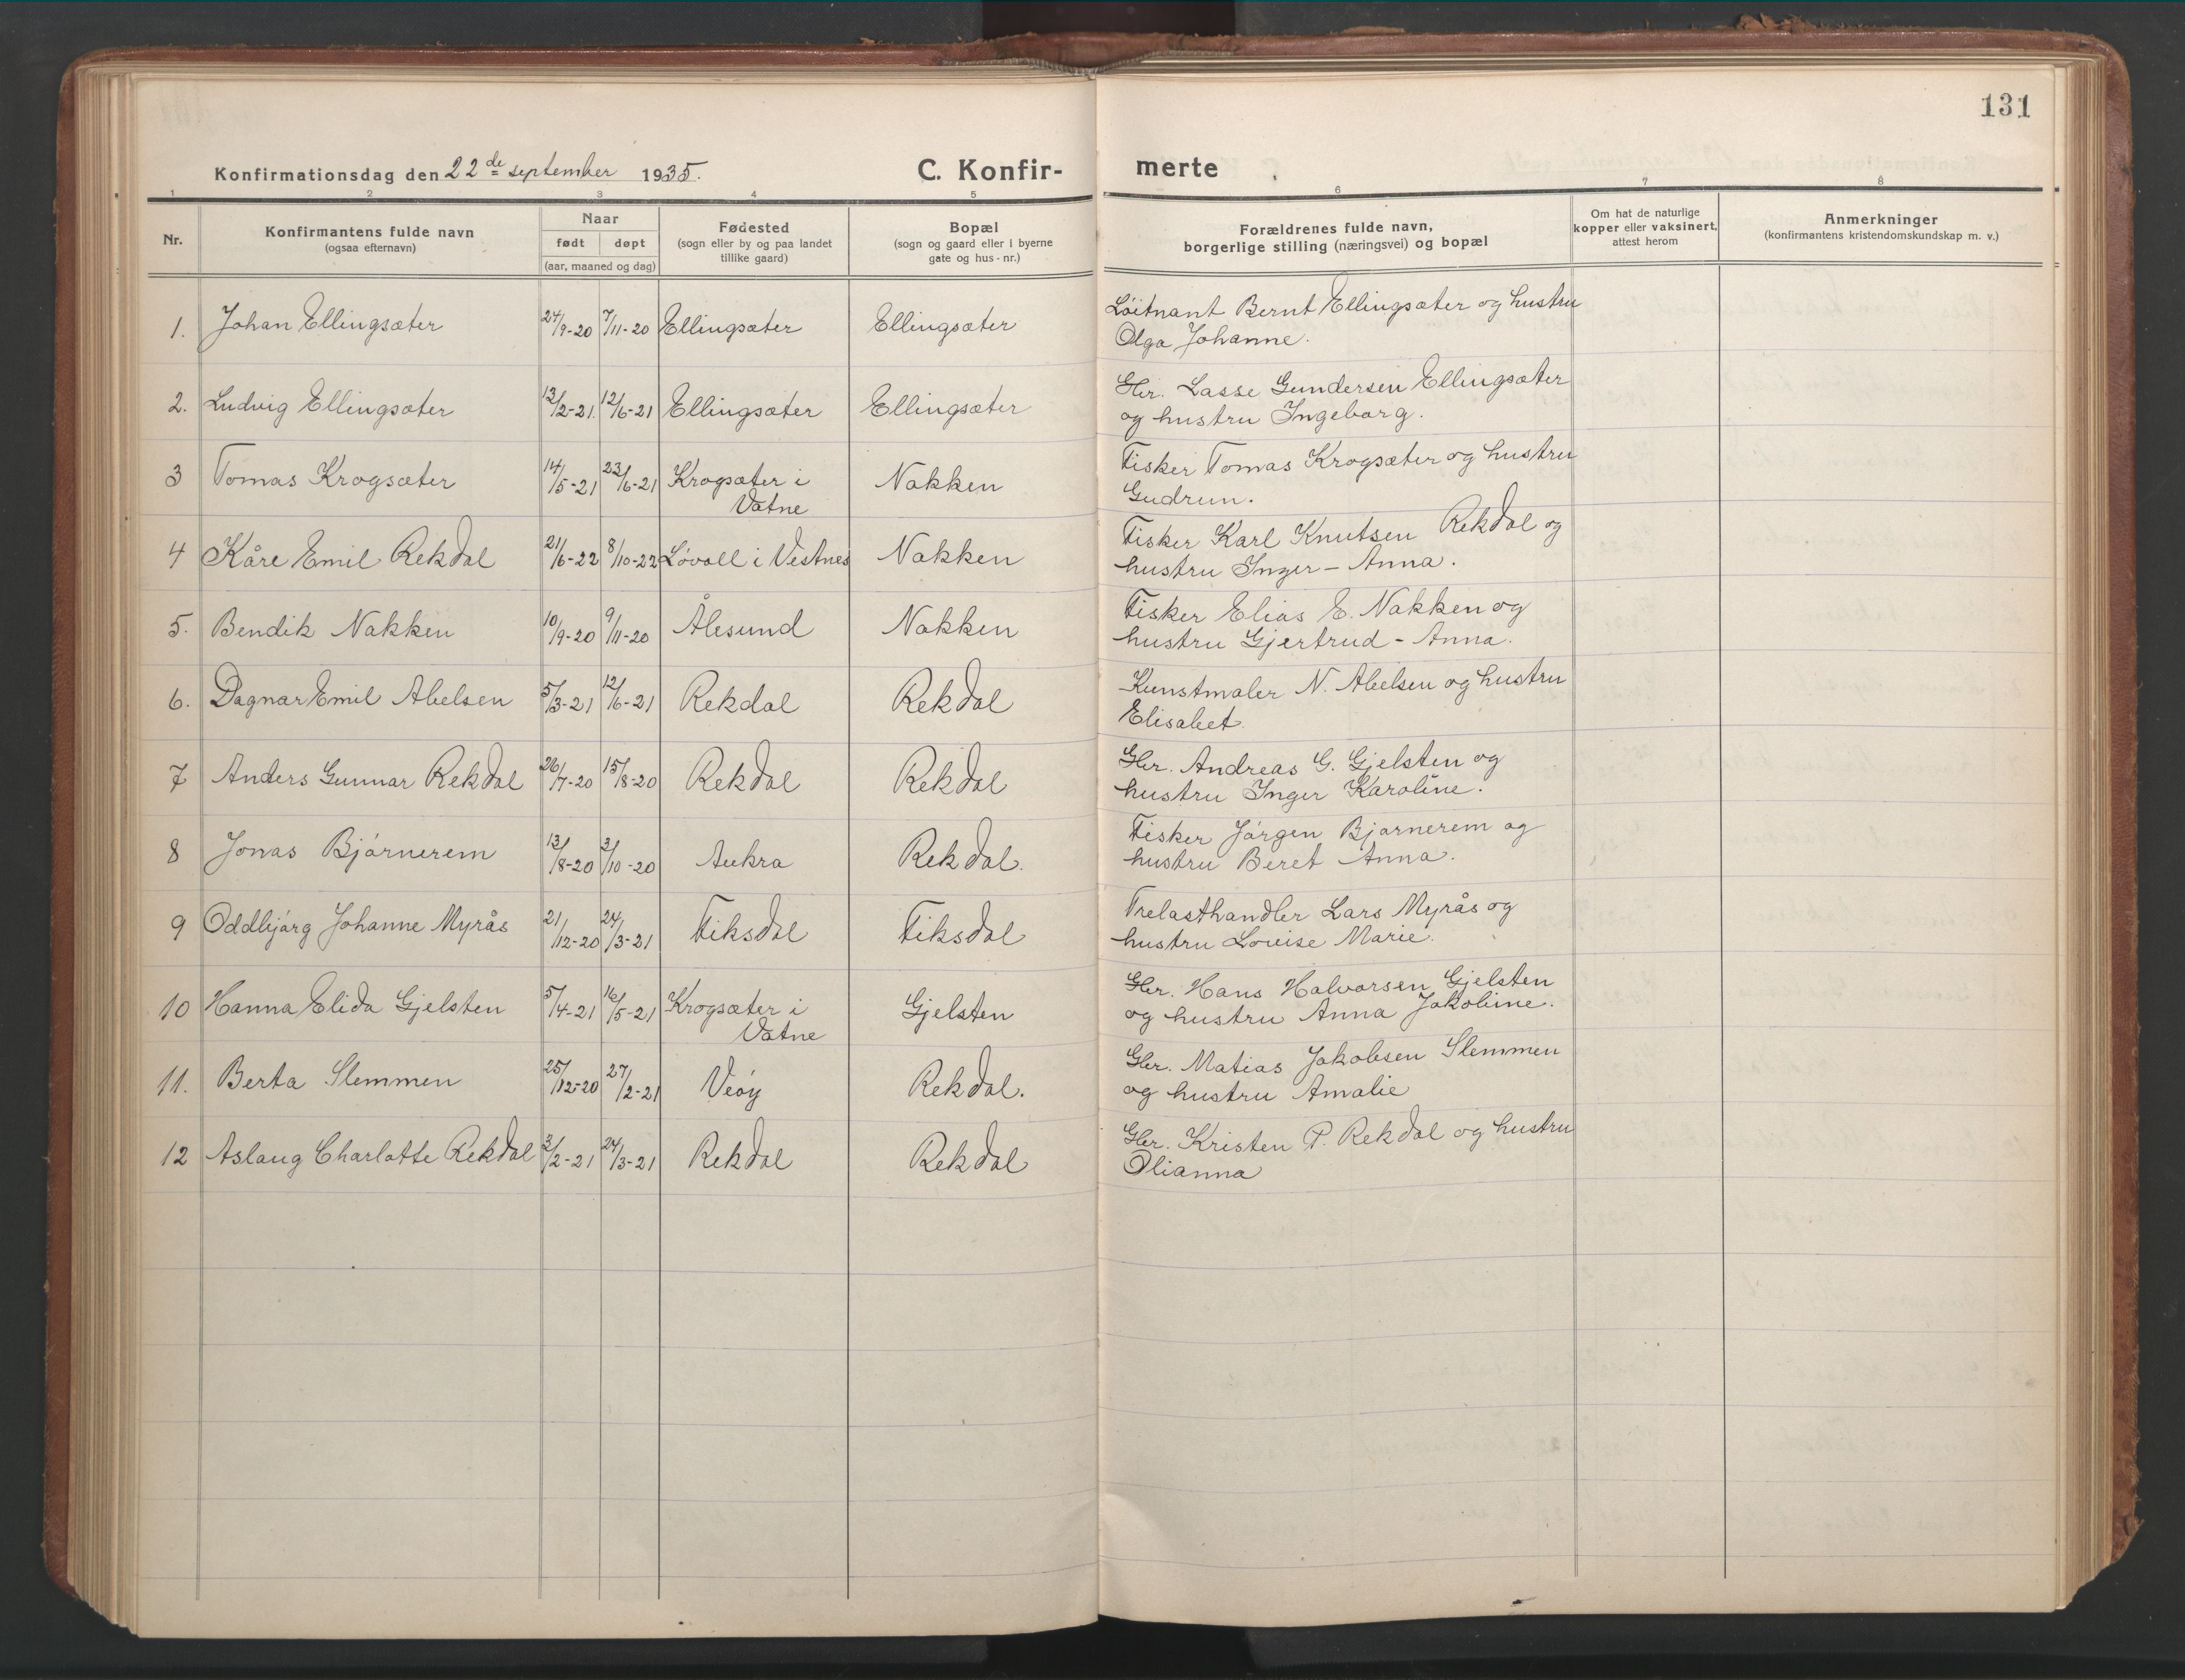 131
Konfirmationsdag den 22de september 1935. C. Konfir- merte
1 2 3 4 5 6 7 8
Nr.
Konfirmantens fulde navn
(ogsaa efternavn)
Naar
født døpt
(aar, maaned og dag)
Fødested
(sogn eller by og paa landet
tillike gaard)
Bopæl
(sogn og gaard eller i byerne
gate og hus-nr.)
Forældrenes fulde navn,
borgerlige stilling (næringsvei) og bopæl
Om hat de naturlige
kopper eller vaksinert,
attest herom
Anmerkninger
(konfirmantens kristendomskundskap m. v.)
1. Johan Ellingsæter 24/9-20 7/11-20 Ellingsæter Ellingsæter Löitnant Bernt Ellingsæter og hustru
Olga Johanne.
2. Ludvig Ellingsæter 12/2-21. 12/6-21 Ellingsæter Ellingsæter Gbr. Lasse Gundersen Ellingsæter
og hustru Ingeborg.
3 Tomas Krogsæter 14/5-21 23/6-21 Krogsæter i Nakken Fisker Tomas Krogsæter og hustru
Vatne Gudrun.
4 Kåre Emil Rekdal 21/6-22 8/10-22 Løvoll i Vestnes Nakken Fisker Karl Knutsen Rekdal og
hustru Inger-Anna.
5. Bendik Nakken 10/9-20 9/11-20 Ålesund Nakken Fisker Elias E. Nakken og
hustru Gjertrud-Anna.
6. Dagnar Emil Abelsen 5/3-21 12/6-21 Rekdal Rekdal Kunstmaler N. Abelsen og hustru
Elisabet.
7 Anders Gunnar Rekdal 26/7-20 15/8-20 Rekdal Rekdal Gbr. Andreas G. Gjelsten og
hustru Inger Karoline.
8 Jonas Bjórnerem 13/8-20 3/10-20 Aukra Rekdal. Fisker Jórgen Bjørnerem og
hustru Beret Anna.
9 Oddbjórg Johanne Myrås 21/12-20 24/3-21 Fiksdal Fiksdal Trelasthandler Lars Myrås og
hustru Louise Marie.
10 Hanna Elida Gjelsten 5/4-21 16/5-21 Krogsæter i Gjelsten Gbr. Hans Halvorsen Gjelsten
Vatne og hustru Anna Jakobine.
11. Berta Slemmen 25/12-20 27/2-21 Veóy Rekdal. Gbr. Matias Jakobsen Slemmen
og hustru Amalie
12 Aslaug Charlotte Rekdal 3/2-21 24/3-21 Rekdal Rekdal Gbr. Kristen P. Rekdal og hustru
Olianna